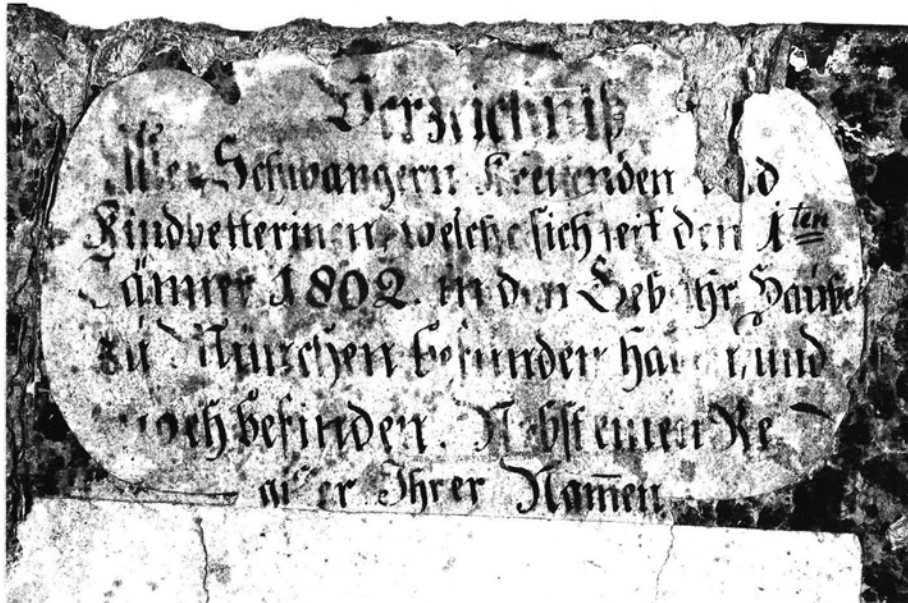 Verzeichniß
Aller Schwangern Kreisenden und
Kindbetterinen, welche sich seit den 1ten
Jänner 1802. in den Gebähr Hause
zu München befunden haben, und
noch befinden. Nebst einen
aller Ihrer Nam̄en